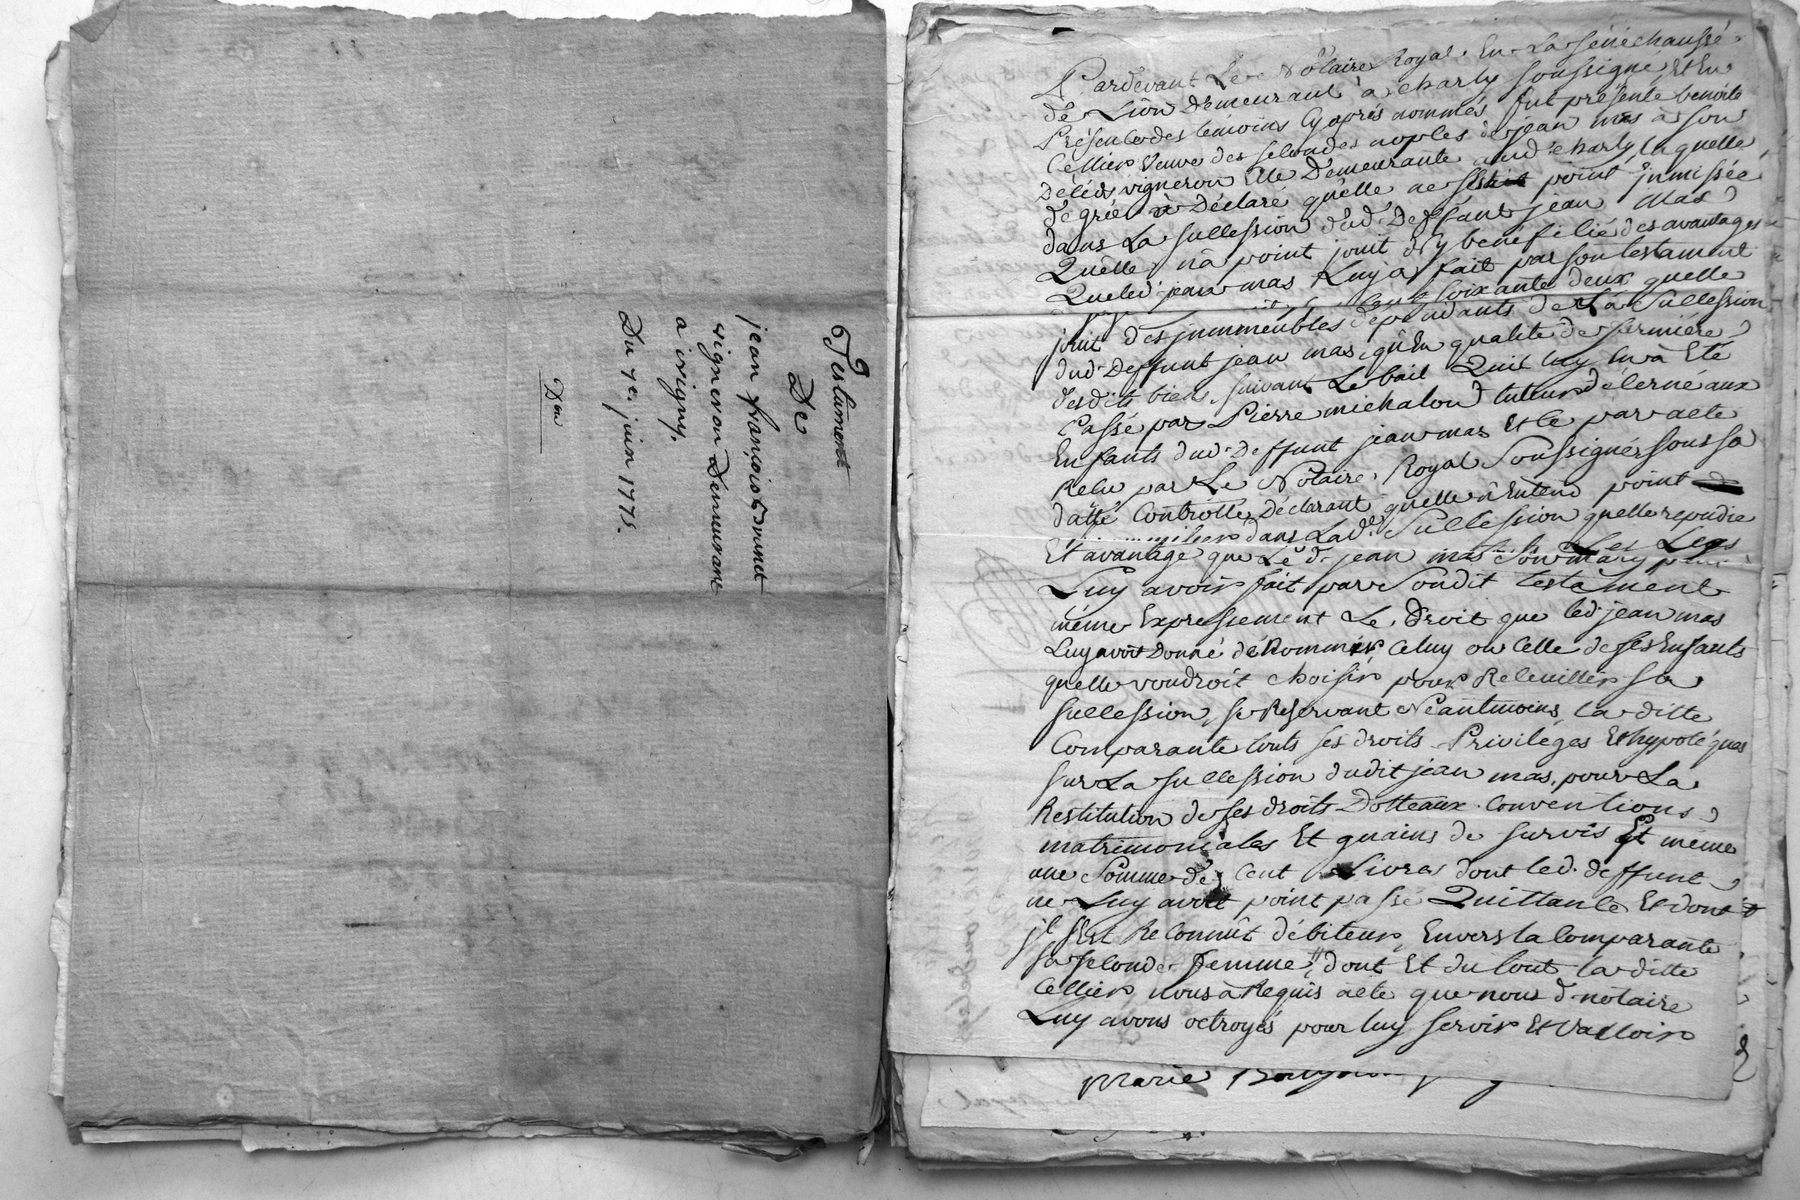 Testament
De
jean françois Brunet
vigneron Demeurant
à irigny.
Du 7e. juin 1775.
Don
Pardevant Le Notaire Royal En La sénéchaussé
de Lion demeurant à charly soussigné, Et En
Présence des témoins Cy après nommés, fut présente benoite
Cellier veuve des secondes nopces de jean mas à son
décéds vigneron Elle Demeurante aud. charly, laquelle
de gréé à Déclaré qu'elle ne point jmmissée
dans La succession dud. Deffunt jean Mas
Quelle n'a point jouit d'y bénéficié des avantages
Queled. jean mas Luy a fait par son testament
soixante deux quelle
jouit des jmmeubles dépendants de La succession
dud. Deffunt jean mas, qu'En qualité de fermière
desdits biens, suivant Le bail Quil luy En à Eté
Passé par Pierre michalon tuteur décerné aux
Enfants dud. deffunt jean mas Et le par acte
Relu par Le Notaire Royal Soussigné sous sa
datte Controllé, Déclarant quelle n'Entend point
dans Lad. Succession quelle repudie
Les Legs
Et avantage que Le d. jean mas son mary
Luy avoir fait par Sondit testament
même Expressement Le Droit que led. jean mas
Luy avoit Donné de Nommer Celuy ou Celle de ses Enfants
quelle voudroit choisir pour Receuillir sa
succession, se Reservant Néantmoins, la ditte
Comparante touts ses droits Privileges Et hypoteques
sur La succession dudit jean mas, pour La
Restitution de ses droits Dotteaux Conventions
matrimoniales Et guains de survis Et même
une Somme de Cent Livres dont led. deffunt
ne Luy avoit point passé Quittance Et dont
jl s'est Reconnût débiteur, Envers la Comparante
sa seconde femme, dont Et du tout, la ditte
Cellier nous à Requis acte que nous d. notaire
Luy avons octroyés pour luy servir Et valloir
Marie